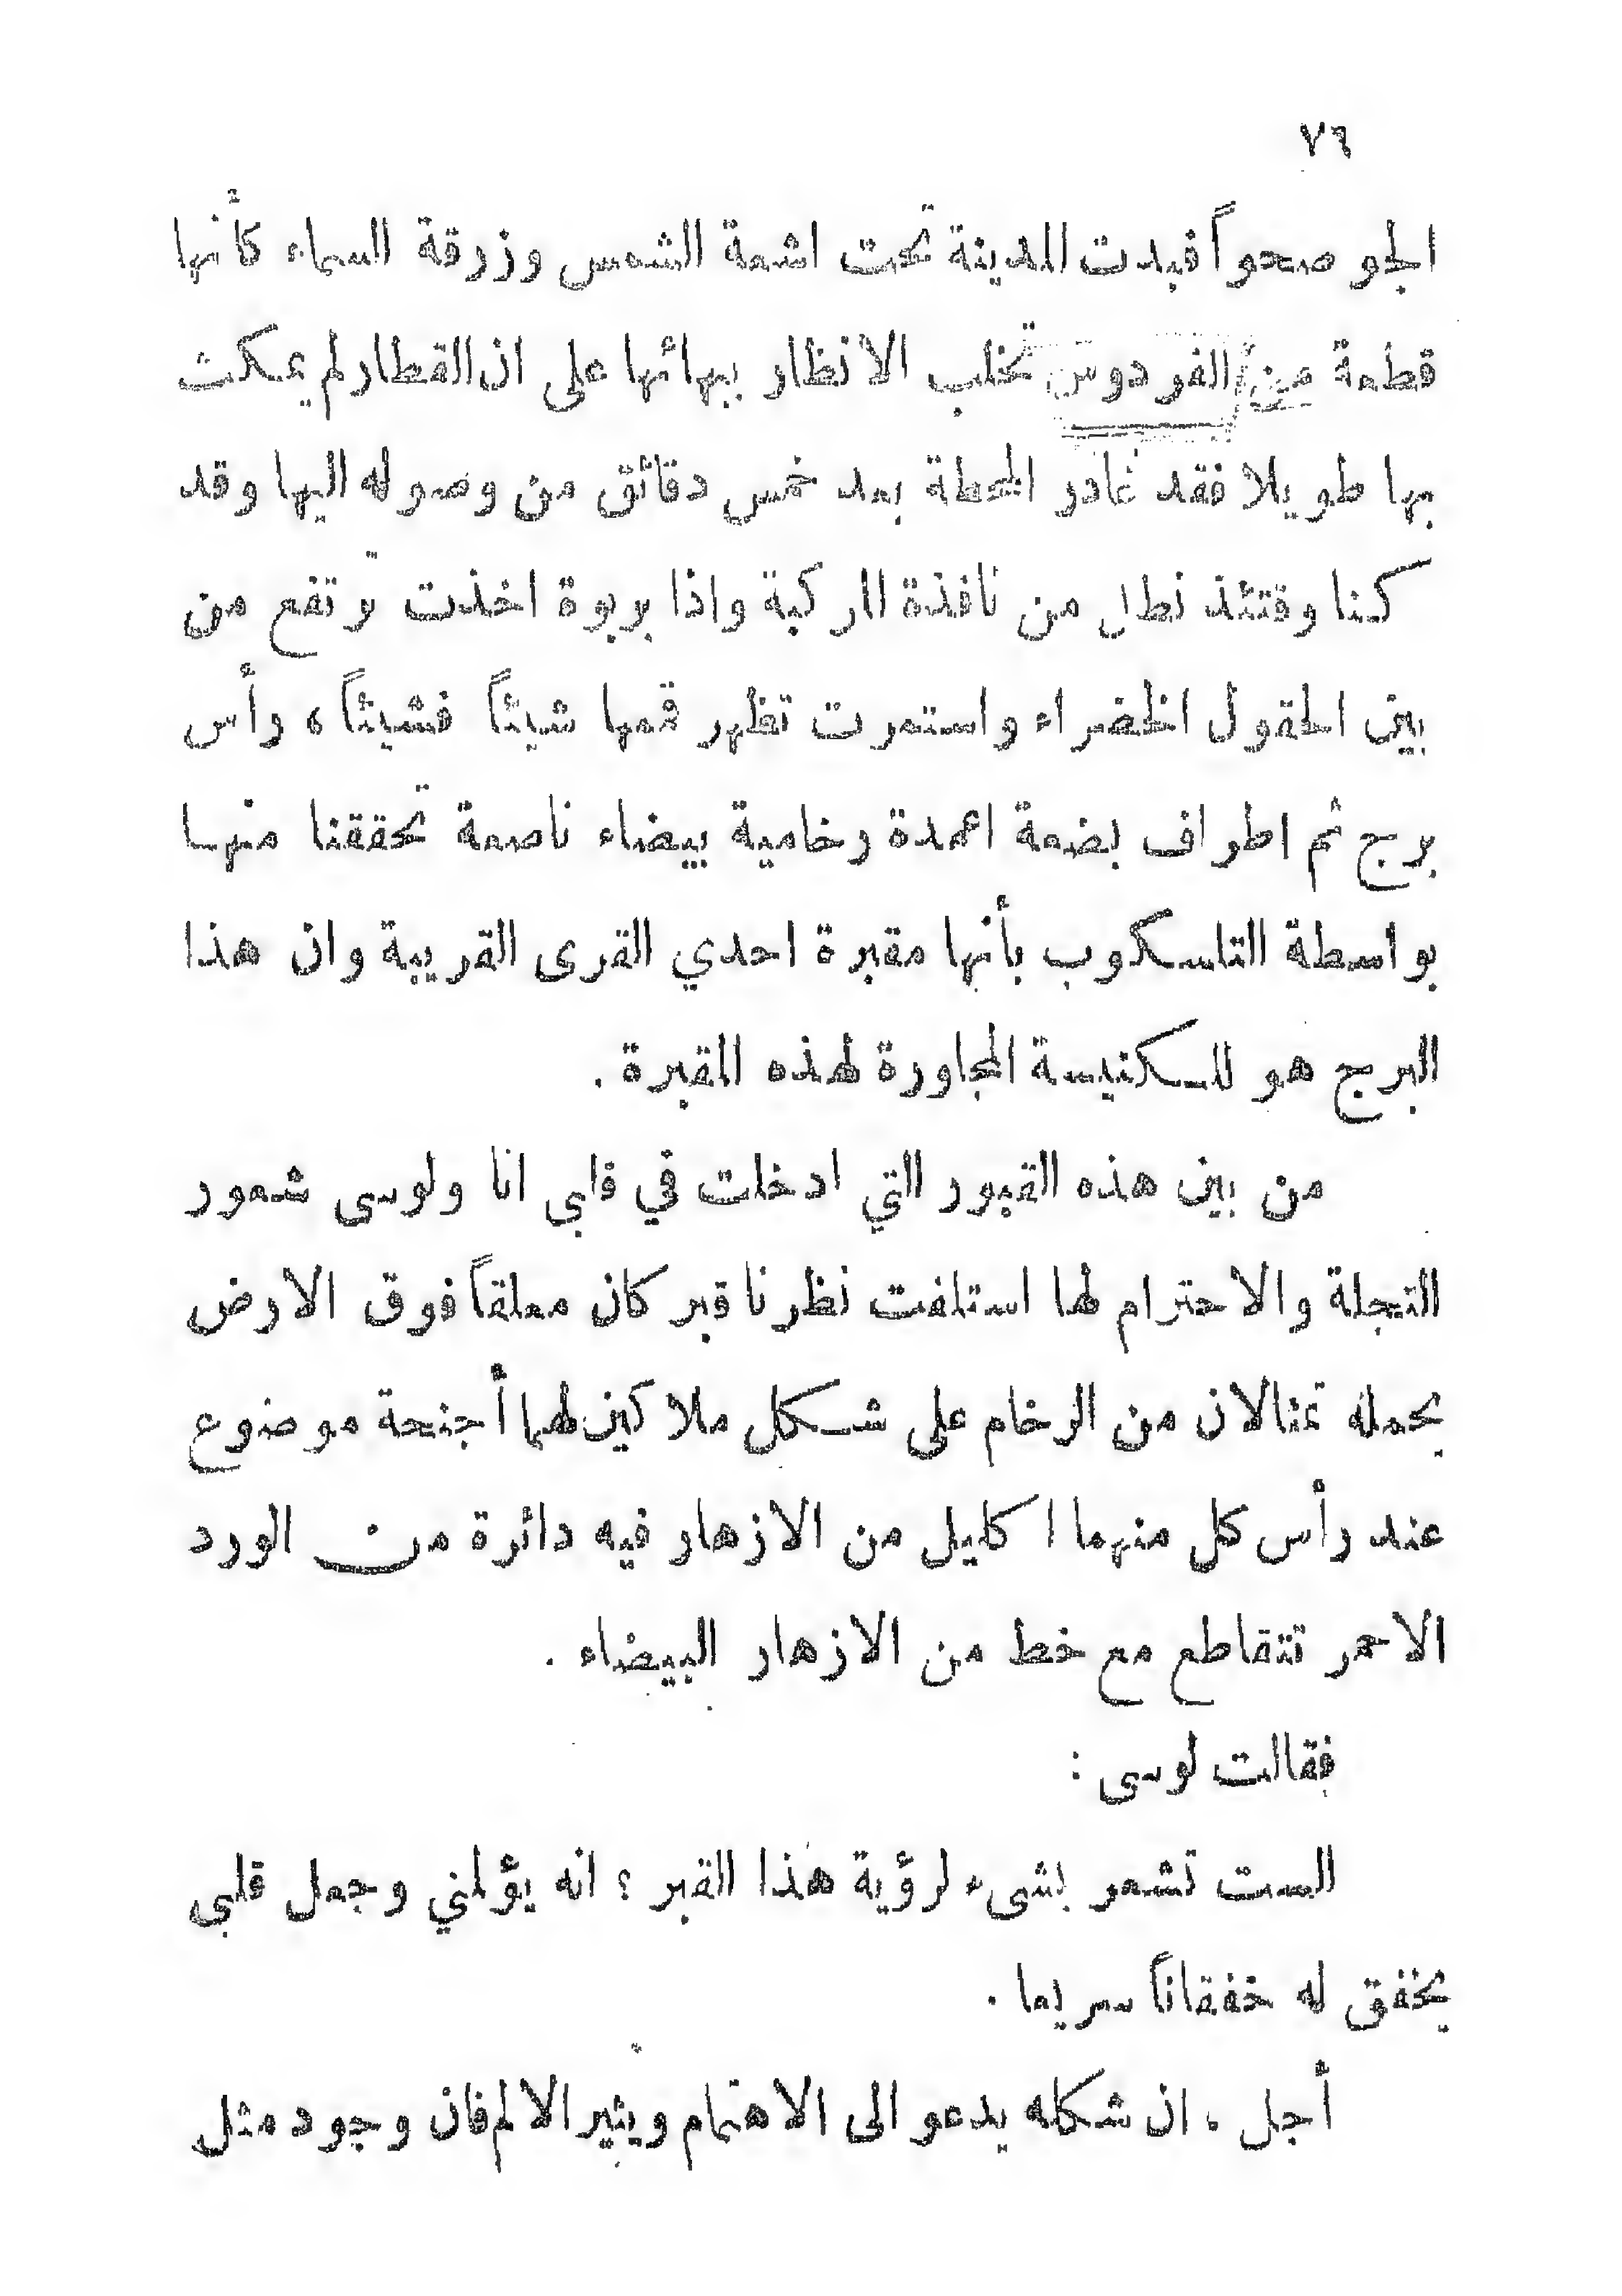 ٧٦
الجو صحواً فبدت المدينة تحت اشعة الشمس وزرقة السماء كأنها
قطعة من الفردوس تخلب الانظار ببهائها على ان القطار لم يمكث
بها طويلا فقد غادر المحطة بعد خمس دقائق من وصوله اليها وقد
كنا وقتئذ نطل من نافذة المركبة واذا بربوة اخذت ترتفع من
بين الحقول الخضراء واستمرت تظهر قمها شيئاً فشيئاً ، رأس
برج ثم اطراف بضعة اعمدة رخامية بيضاء ناصعة تحققنا منها
بواسطة التلسكوب بأنها مقبرة احدي القرى القريبة وان هذا
البرج هو للكنيسة المجاورة لهذه المقبرة .
من بين هذه القبور التي ادخلت في قلبي انا ولوسى شعور
التجلة والاحترام لها استلفت نظرنا قبر كان معلقاً فوق الارض
يحمله تمثالان من الرخام على شكل ملاكين لهما أجنحة موضوع
عند رأس كل منهما اكليل من الازهار فيه دائرة من الورد
الاحمر تتقاطع مع خط من الازهار البيضاء .
فقالت لوسى :
الست تشعر بشىء لرؤية هذا القبر ؟ انه يؤلمني وجعل قلبي
يخفق له خفقاناً سريعا .
أجل ، ان شكله يدعو الى الاهتمام ويثير الالم فان وجود مثل